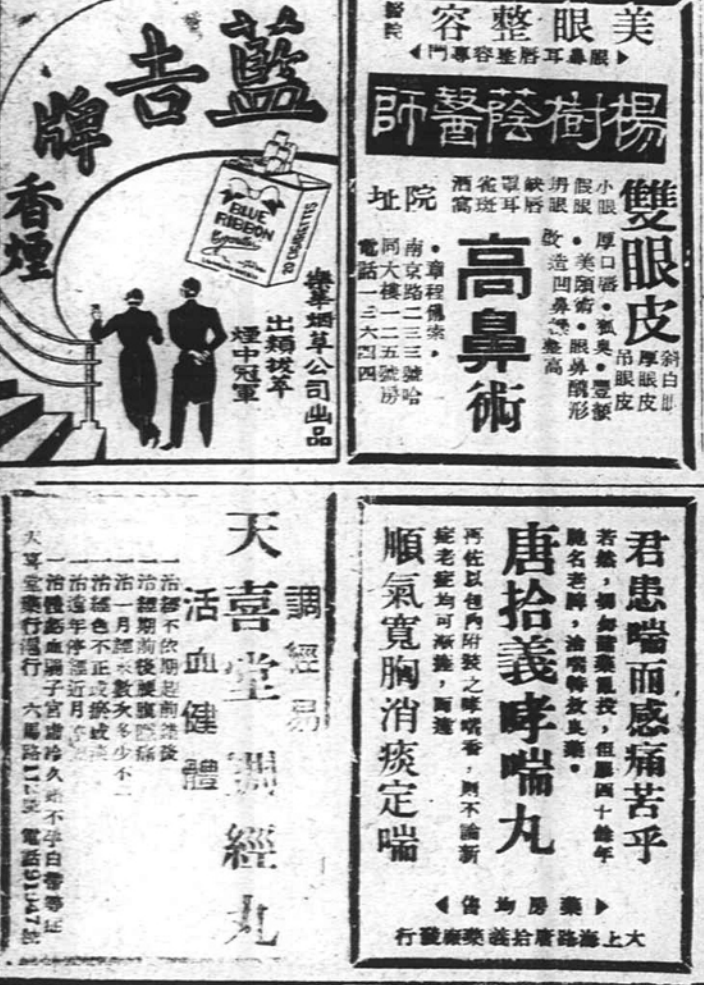 美眼整容
醫院
眼鼻耳唇整容專門
楊樹蔭醫師
雙眼皮
斜白眼
厚眼皮
吊眼皮
小眼
假眼
缺唇
單耳
雀斑
酒窩
厚口唇•狐臭•豐額
美頭術•眼鼻醜形
改造凹鼻
整高
高鼻術
院址
•章程備索•
南京路二三三號哈
同大樓一二五號房
電話一三六四四
藍吉牌
香煙
BLUE
RIBBON
Cigarettes
煙草公司出品
出類拔萃
煙中冠軍
君患喘而感痛苦乎
若然，
四十餘年
馳名老牌，治喘特效良藥。
唐拾義哮喘丸
再佐以包內附裝之哮喘香，則不論新
症老症均可漸痊，
順氣寬胸消痰定喘
藥房均售
大上海路唐拾義藥廠發行
調經易
天喜堂調經丸
活血健體
一治經不依期超前落後
一治經期前後腰腹痛
一治一月經來數次多少不
一治經色不正或瘀或淡
一治逾年停經近月
子宮虛冷久婚不孕白帶等症
天喜堂藥行
六馬路
電話91047號